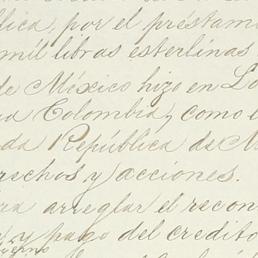 lica, por el préstamo
mil libras esterlinas
de México hizo en Lo
a Colombia, como e
da República de M
rechos y acciones.
ra arreglar el recon
y pago del credito